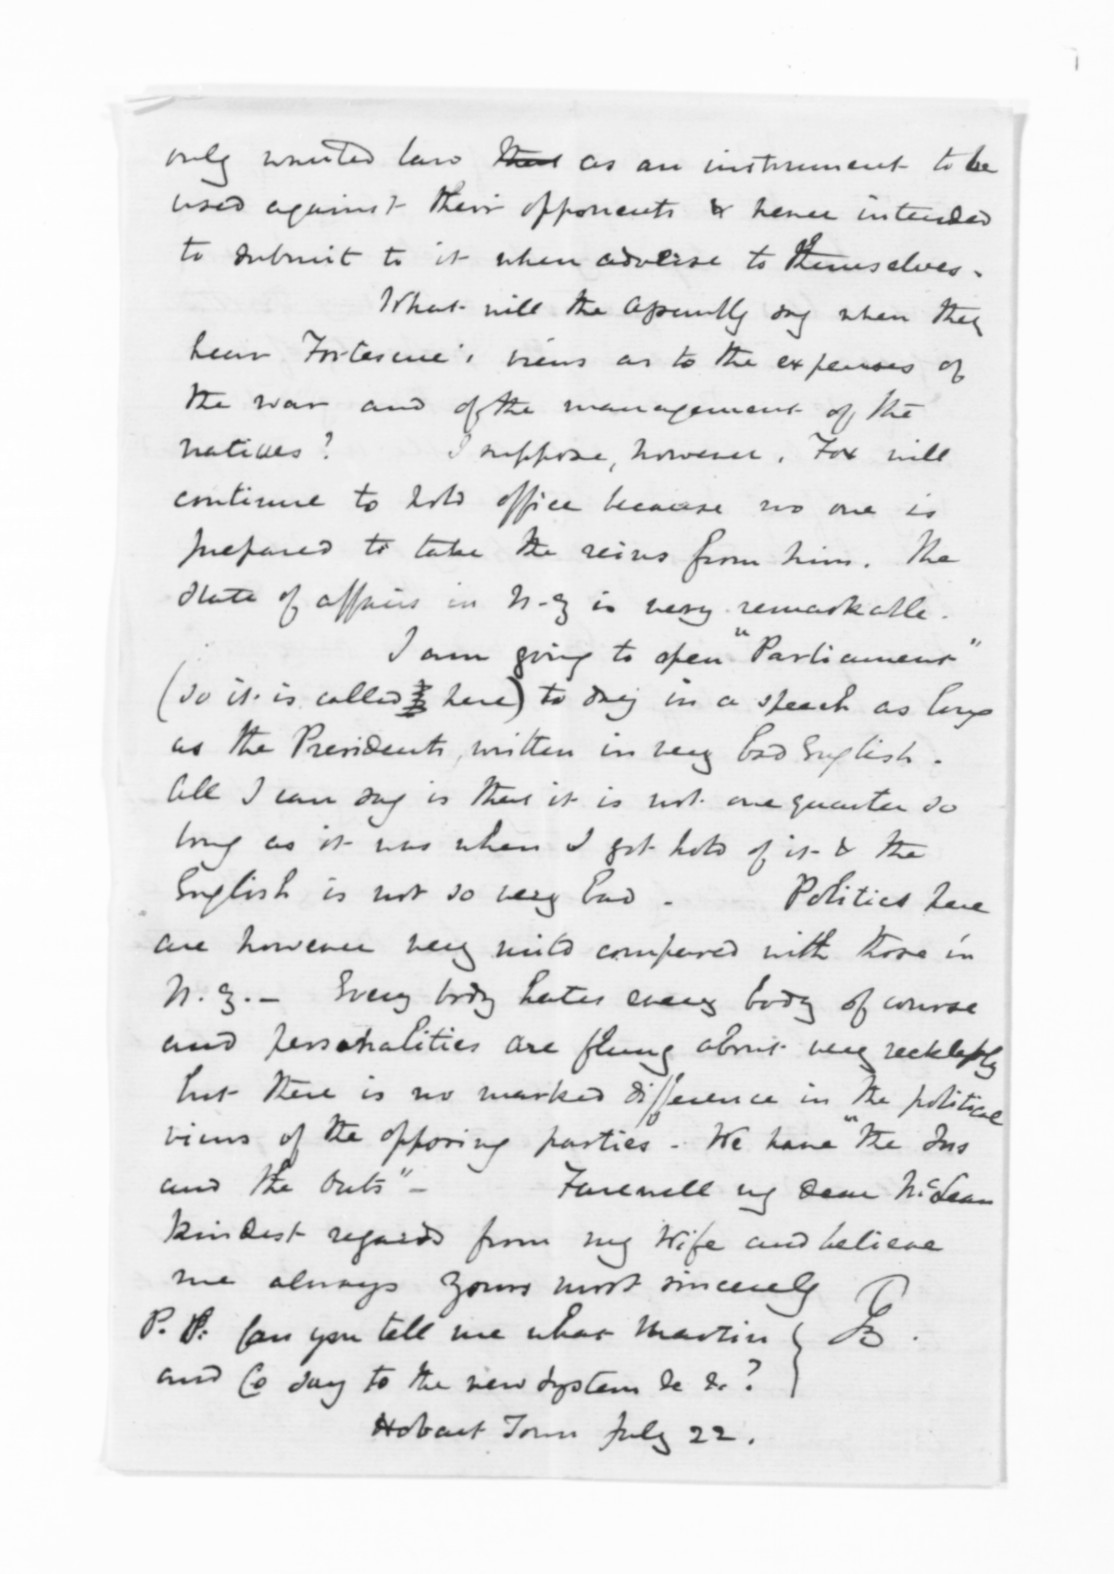 only wanted law that as an instrument to be
used against their opponents & hence intended
to submit to it when adverse to themselves.
What will the Assembly say when they
hear Fortescue's views as to the expenses of
the war and of the management of the
natives? I suppose, however, Fox will
continue to hold office because no one is
prepared to take the reins from him. The
state of affairs in N-Z is very remarkable.
I am going to open "Parliament"
(so it is called here) to day in a speech as long
as the Presidents, written in very bad English.
All I can say is that it is not one quarter so
long as it was when I got hold of it & the
English is not so very bad - Politics here
are however very mild compared with those in
N. Z. - Every body hates every body of course
and personalities are flung about very recklessly
but there is no marked difference in the political
views of the opposing parties - We have "the Ins
and the Outs" - Farewell my dear McLean
kindest regards from my Wife and believe
me always yours most sincerely
P. P. Can you tell me what Martin
and Co say to the new system &c &c?
Hobart Town July 22.